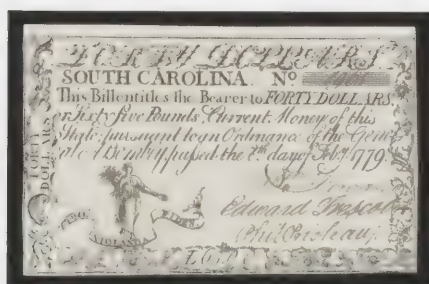 FORTY DOLLARS
SOUTH CAROLINA. Nº
This Bill entitles the Bearer to FORTY DOLLARS
or Sixty five Pounds, Current Money of this
State, pursuant to an Ordinance of the Gener-
al Assembly, passed the 8th day of Feby. 1779.
FORTY
DOLLARS
Edward Trescot